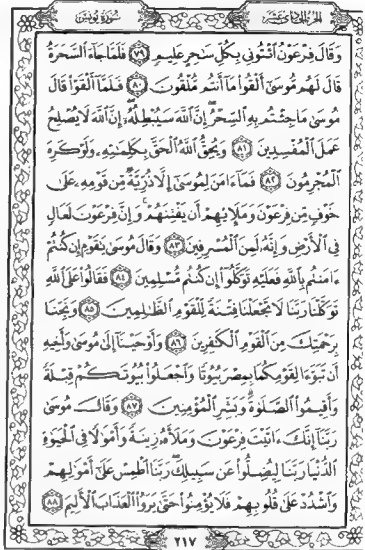 سورة يونس
الجزء الحادي عشر
وَقَالَ فِرْعَوْنُ ٱئْتُونِى بِكُلِّ سَٰحِرٍ عَلِيمٍ ٧٩ فَلَمَّا جَآءَ ٱلسَّحَرَةُ
قَالَ لَهُم مُّوسَىٰٓ أَلْقُوا۟ مَآ أَنتُم مُّلْقُونَ ٨٠ فَلَمَّآ أَلْقَوْا۟ قَالَ
مُوسَىٰ مَا جِئْتُم بِهِ ٱلسِّحْرُ إِنَّ ٱللَّهَ سَيُبْطِلُهُۥٓ إِنَّ ٱللَّهَ لَا يُصْلِحُ
عَمَلَ ٱلْمُفْسِدِينَ ٨١ وَيُحِقُّ ٱللَّهُ ٱلْحَقَّ بِكَلِمَٰتِهِۦ وَلَوْ كَرِهَ
ٱلْمُجْرِمُونَ ٨٢ فَمَآ ءَامَنَ لِمُوسَىٰٓ إِلَّا ذُرِّيَّةٌ مِّن قَوْمِهِۦ عَلَىٰ
خَوْفٍ مِّن فِرْعَوْنَ وَمَلَإِي۟هِمْ أَن يَفْتِنَهُمْ وَإِنَّ فِرْعَوْنَ لَعَالٍ
فِى ٱلْأَرْضِ وَإِنَّهُۥ لَمِنَ ٱلْمُسْرِفِينَ ٨٣ وَقَالَ مُوسَىٰ يَٰقَوْمِ إِن كُنتُمْ
ءَامَنتُم بِٱللَّهِ فَعَلَيْهِ تَوَكَّلُوٓا۟ إِن كُنتُم مُّسْلِمِينَ ٨٤ فَقَالُوا۟ عَلَى ٱللَّهِ
تَوَكَّلْنَا رَبَّنَا لَا تَجْعَلْنَا فِتْنَةً لِّلْقَوْمِ ٱلظَّٰلِمِينَ ٨٥ وَنَجِّنَا
بِرَحْمَتِكَ مِنَ ٱلْقَوْمِ ٱلْكَٰفِرِينَ ٨٦ وَأَوْحَيْنَآ إِلَىٰ مُوسَىٰ وَأَخِيهِ
أَن تَبَوَّءَا لِقَوْمِكُمَا بِمِصْرَ بُيُوتًا وَٱجْعَلُوا۟ بُيُوتَكُمْ قِبْلَةً
وَأَقِيمُوا۟ ٱلصَّلَوٰةَ وَبَشِّرِ ٱلْمُؤْمِنِينَ ٨٧ وَقَالَ مُوسَىٰ
رَبَّنَآ إِنَّكَ ءَاتَيْتَ فِرْعَوْنَ وَمَلَأَهُۥ زِينَةً وَأَمْوَٰلًا فِى ٱلْحَيَوٰةِ
ٱلدُّنْيَا رَبَّنَا لِيُضِلُّوا۟ عَن سَبِيلِكَ رَبَّنَا ٱطْمِسْ عَلَىٰٓ أَمْوَٰلِهِمْ
وَٱشْدُدْ عَلَىٰ قُلُوبِهِمْ فَلَا يُؤْمِنُوا۟ حَتَّىٰ يَرَوُا۟ ٱلْعَذَابَ ٱلْأَلِيمَ ٨٨
٢١٧